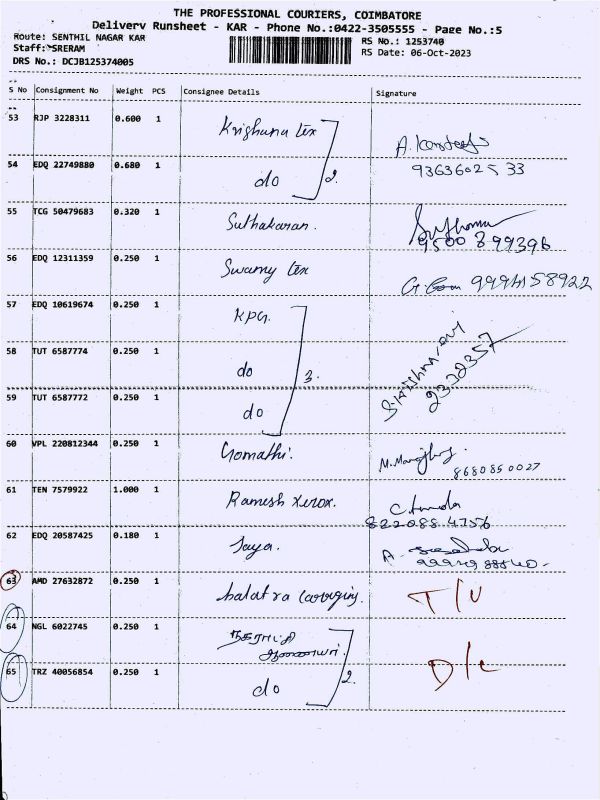 THE PROFESSIONAL COURIERS, COIMBATORE
Delivery Runsheet - KAR - Phone No.:0422-3505555 - Page No.:5
Route: SENTHIL NAGAR KAR
RS No.: 1253740
Staff: SRERAM
RS Date: 06-Oct-2023
DRS No.: DCJB125374005
S No Consignment No Weight PCS Consignee Details Signature
53 RJP 3228311 0.600 1 Krishana tex
54 EDQ 22749880 0.680 1 do 2. 9363602533
55 TCG 50479683 0.320 1 Suthakaran. 9500899396
56 EDQ 12311359 0.250 1 Swamy tex
57 EDQ 10619674 0.250 1 KPG.
58 TUT 6587774 0.250 1 do 3.
59 TUT 6587772 0.250 1 do
60 VPL 220812344 0.250 1 Gomathi. 8680850027
61 TEN 7579922 1.000 1 Ramesh Xerox.
62 EDQ 20587425 0.180 1 Jaya. A.
63 AMD 27632872 0.250 1 T/U
64 NGL 6022745 0.250 1 ஆணையர்.
65 TRZ 40056854 0.250 1 do 2. D/L